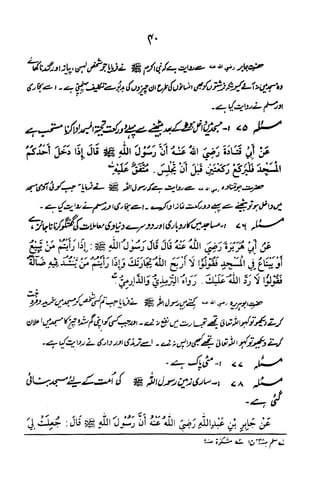 ۴۰
حضرت جابر رضی اللہ عنہ سے روایت ہے کہ نبی اکرم ﷺ نے فرمایا جو شخص لہسن، پیاز اور گندنا کھائے
وہ مسجد میں نہ آئے کیونکہ فرشتوں کو بھی انسانوں کی طرح ان چیزوں کی بدبو سے تکلیف پہنچتی ہے۔ اسے بخاری
اور مسلم نے روایت کیا ہے۔
مسئلہ ۷۵ مسجد میں داخل ہونے کے بعد بیٹھنے سے پہلے دو رکعت تحیۃ المسجد ادا کرنا مستحب ہے
عَنْ أَبِي قَتَادَةَ رَضِيَ اللهُ عَنْهُ أَنَّ رَسُولَ اللهِ ﷺ قَالَ إِذَا دَخَلَ أَحَدُكُمُ
الْمَسْجِدَ فَلْيَرْكَعْ رَكْعَتَيْنِ قَبْلَ أَنْ يَجْلِسَ. مُتَّفَقٌ عَلَيْهِ
حضرت ابو قتادہ رضی اللہ عنہ سے روایت ہے کہ رسول اللہ ﷺ نے فرمایا جب کوئی آدمی مسجد
میں داخل ہو تو بیٹھنے سے پہلے دو رکعت نماز ادا کرے۔ اسے بخاری اور مسلم نے روایت کیا ہے۔
مسئلہ ۷۶ :۔ مساجد میں کاروباری اور دوسرے دنیاوی معاملات کی گفتگو کرنا ناجائز ہے
عَنْ أَبِي هُرَيْرَةَ رَضِيَ اللهُ عَنْهُ قَالَ قَالَ رَسُولُ اللهِ ﷺ : إِذَا رَأَيْتُمْ مَنْ يَبِيعُ
أَوْ يَبْتَاعُ فِي الْمَسْجِدِ فَقُولُوا لَا أَرْبَحَ اللهُ تِجَارَتَكَ وَإِذَا رَأَيْتُمْ مَنْ يَنْشُدُ فِيهِ ضَالَّةً
فَقُولُوا لَا رَدَّ اللهُ عَلَيْكَ . رَوَاهُ التِّرْمِذِيُّ وَالدَّارِمِيُّ
حضرت ابوہریرہ رضی اللہ عنہ کہتے ہیں رسول اللہ ﷺ نے فرمایا جب تم کسی شخص کو مسجد میں خرید و فروخت
کرتے دیکھو تو کہو اللہ تعالیٰ تجھے تجارت میں نفع نہ دے۔ اور جب کسی کو اپنی گم شدہ چیز کا مسجد میں اعلان
کرتے دیکھو تو کہو اللہ تعالیٰ تجھے کبھی واپس نہ دے۔ اسے ترمذی اور دارمی نے روایت کیا ہے۔
مسئلہ ۷۷ :۔ مٹی پاک ہے۔
مسئلہ ۷۸ :۔ ساری زمین رسول اللہ ﷺ کی امت کے لیے مسجد بنائی
گئی ہے۔
عَنْ جَابِرِ بْنِ عَبْدِاللهِ رَضِيَ اللهُ عَنْهُ أَنَّ رَسُولَ اللهِ ﷺ قَالَ : جُعِلَتْ لِيَ